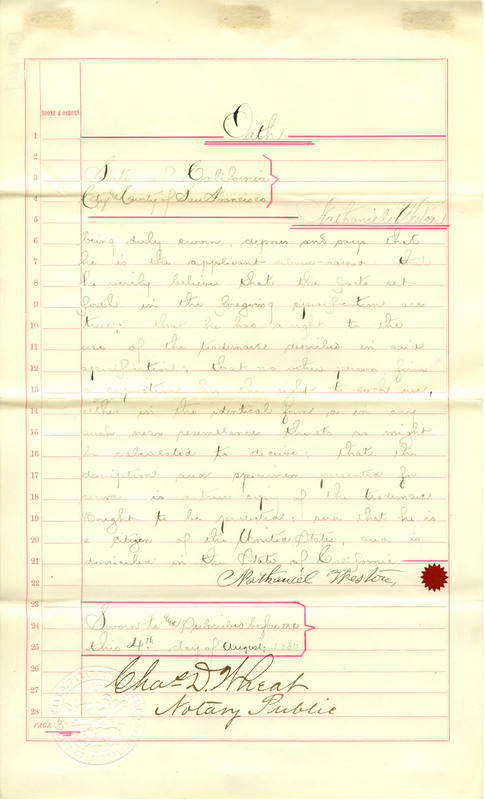 BOOKS & ORDERS
Oath
1
2
3 State of California
4 City & County of San Francisco
5 Nathaniel Weston
6 being duly sworn, deposes and says that
7 he is the applicant above-named: that
8 he verily believes that the facts set
9 forth in the foregoing specification are
10 true; that he has a right to the
11 use of the trademark described in said
12 specification; that no other person, firm
13 corporation has the right to such use,
14 either in the identical form or in any
15 such near resemblance thereto as might
16 be calculated to deceive; that the
17 description and specimen presented for
18 record is a true copy of the trademark
19 sought to be protected; and that he is
20 a citizen of the United States, and is
21 domiciled in the State of California
22 Nathaniel Weston
23
24 Sworn to and Subscribed before me
25 this 4th day of August, 1880
26
27 Chas D. Wheat
28 Notary Public
PAGE 3